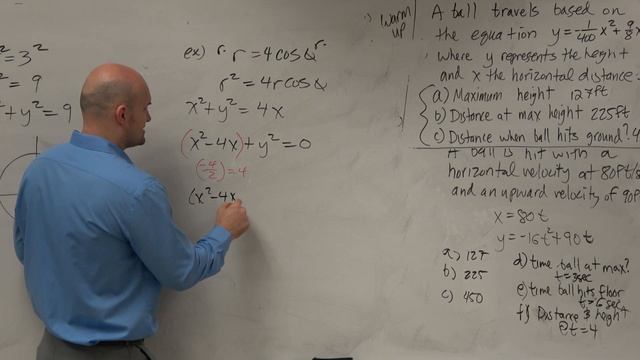 ² = 3²
² = 9
² + y² = 9
ex) r · r = 4 cos θ · r
r² = 4r cos θ
x² + y² = 4x
(x² - 4x ) + y² = 0
(-4/2) = 4
(x² - 4x
warm up
A ball travels based on
the equation y = -1/400 x² + 9/8 x
where y represents the height
and x the horizontal distance.
a) Maximum height 127ft
b) Distance at max height 225ft
c) Distance when ball hits ground? 4
A ball is hit with a
horizontal velocity at 80ft/s
and an upward velocity of 90f
x = 80t
y = -16t² + 90t
a) 127
b) 225
c) 450
d) time ball at max?
t = 3sec
e) time ball hits floor
t > 6 sec
f) Distance & height
@ t = 4